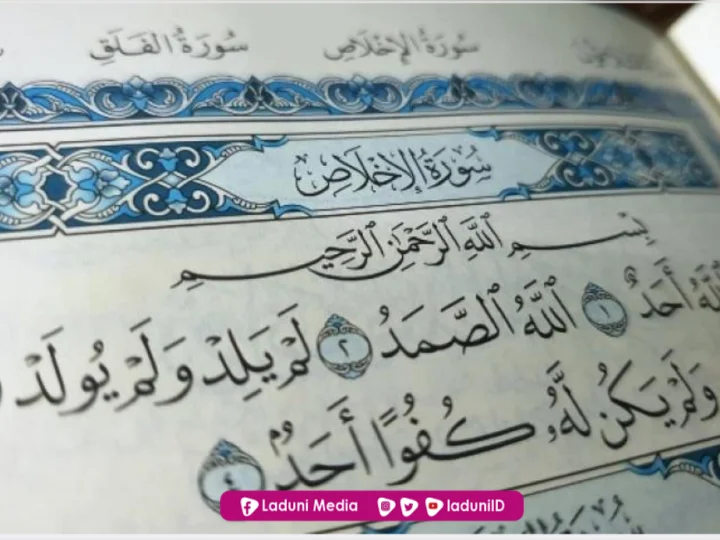 سُورَةُ الإِخْلَاصِ سُورَةُ الفَلَقِ
سُورَةُ الإِخْلَاصِ
بِسْمِ ٱللَّهِ ٱلرَّحْمَٰنِ ٱلرَّحِيمِ
ٱللَّهُ أَحَدٌ ١ ٱللَّهُ ٱلصَّمَدُ ٢ لَمْ يَلِدْ وَلَمْ يُولَدْ
وَلَمْ يَكُن لَّهُۥ كُفُوًا أَحَدٌۢ ٤
Laduni Media laduniID